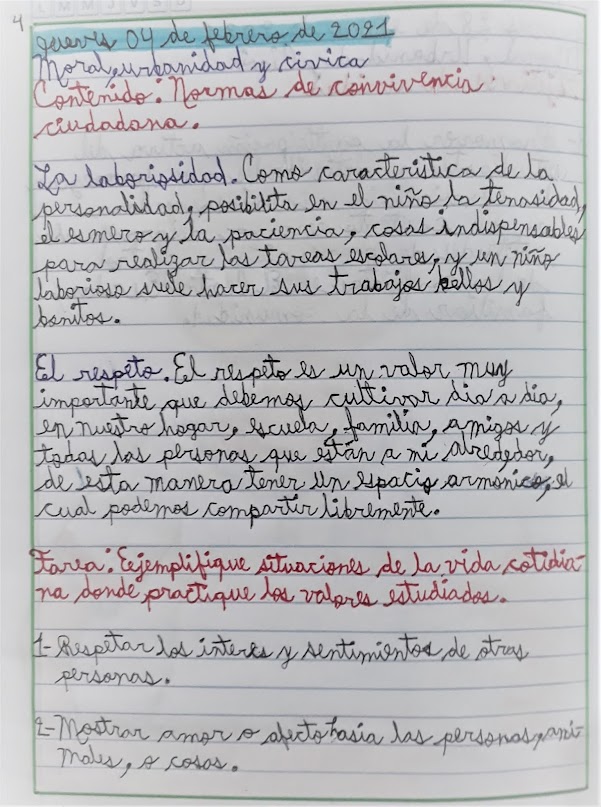 4
Jueves 04 de febrero de 2021
Moral, urbanidad y civica
Contenido: Normas de convivencia
ciudadana.
La laboriosidad. Como caracteristica de la
personalidad, posibilita en el niño la tenasidad,
el esmero y la paciencia, cosas indispensables
para realizar las tareas escolares, y un niño
laborioso suele hacer sus trabajos bellos y
bonitos.
El respeto. El respeto es un valor muy
importante que debemos cultivar dia a dia,
en nuestro hogar, escuela, familia, amigos y
todas las personas que están a mi alrededor,
de esta manera tener un espacio armonico, el
cual podemos compartir libremente.
Tarea: Eejemplifique situaciones de la vida cotidia-
na donde practique los valores estudiados.
1- Respetar los interes y sentimientos de otras
personas.
2- Mostrar amor o afecto hasia las personas, ani-
males, o cosas.